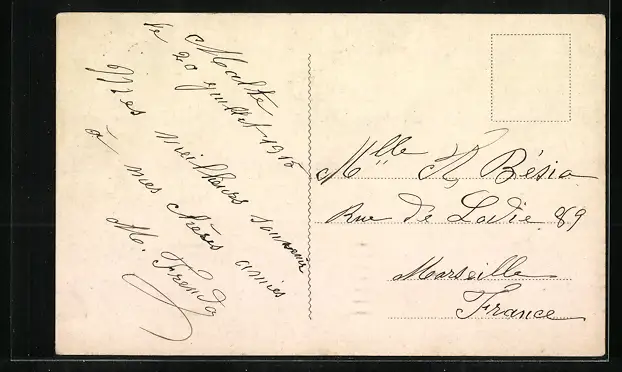 Malte
le 20 Juillet 1915
Mes meilleurs souvenir
à mes chères amies
M. Frenda
Mlle R. Bésia
Rue de Lodie 89
Marseille
France